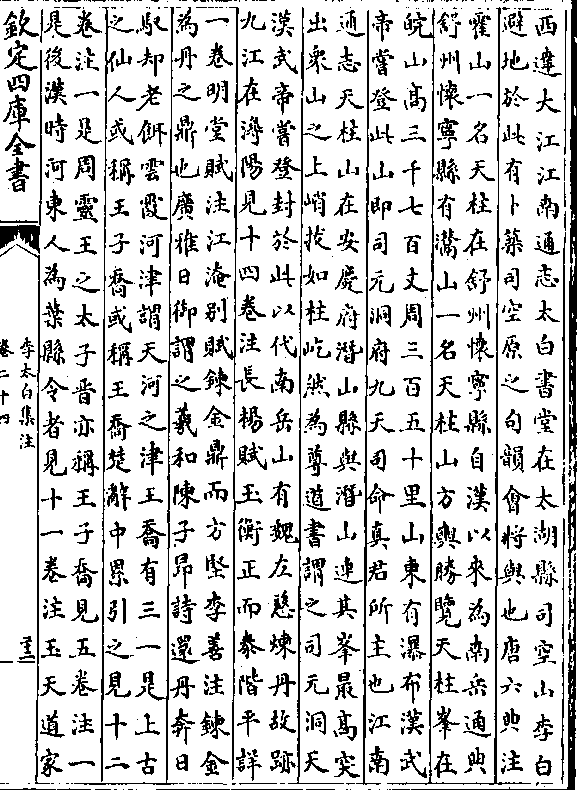 西達大江江南通志太白書堂在太湖縣司空山李白
避地於此有卜築司空原之句韻會將與也唐六典注
霍山一名天柱在舒州懷寧縣自漢以來為南岳通典
舒州懷寧縣有灊山一名天柱山方輿勝覽天柱峯在
皖山高三千七百丈周三百五十里山東有瀑布漢武
帝嘗登此山即司元洞府九天司命真君所主也江南
通志天柱山在安慶府潛山縣與潛山連其峯最高突
出衆山之上峭拔如柱屹然為尊道書謂之司元洞天
漢武帝嘗登封於此以代南岳山有魏左慈煉丹故跡
九江在潯陽見十四卷注長楊賦玉衡正而泰階平詳
一卷明堂賦注江淹别賦鍊金鼎而方堅李善注鍊金
為丹之鼎也廣雅日御謂之羲和陳子昂詩還丹奔日
馭却老餌雲霞河津謂天河之津王喬有三一是上古
之仙人或稱王子喬或稱王喬楚辭中累引之見十二
卷注一是周靈王之太子晋亦稱王子喬見五卷注一
是後漢時河東人為葉縣令者見十一卷注玉天道家
欽定四庫全書
李太白集注
卷二十四